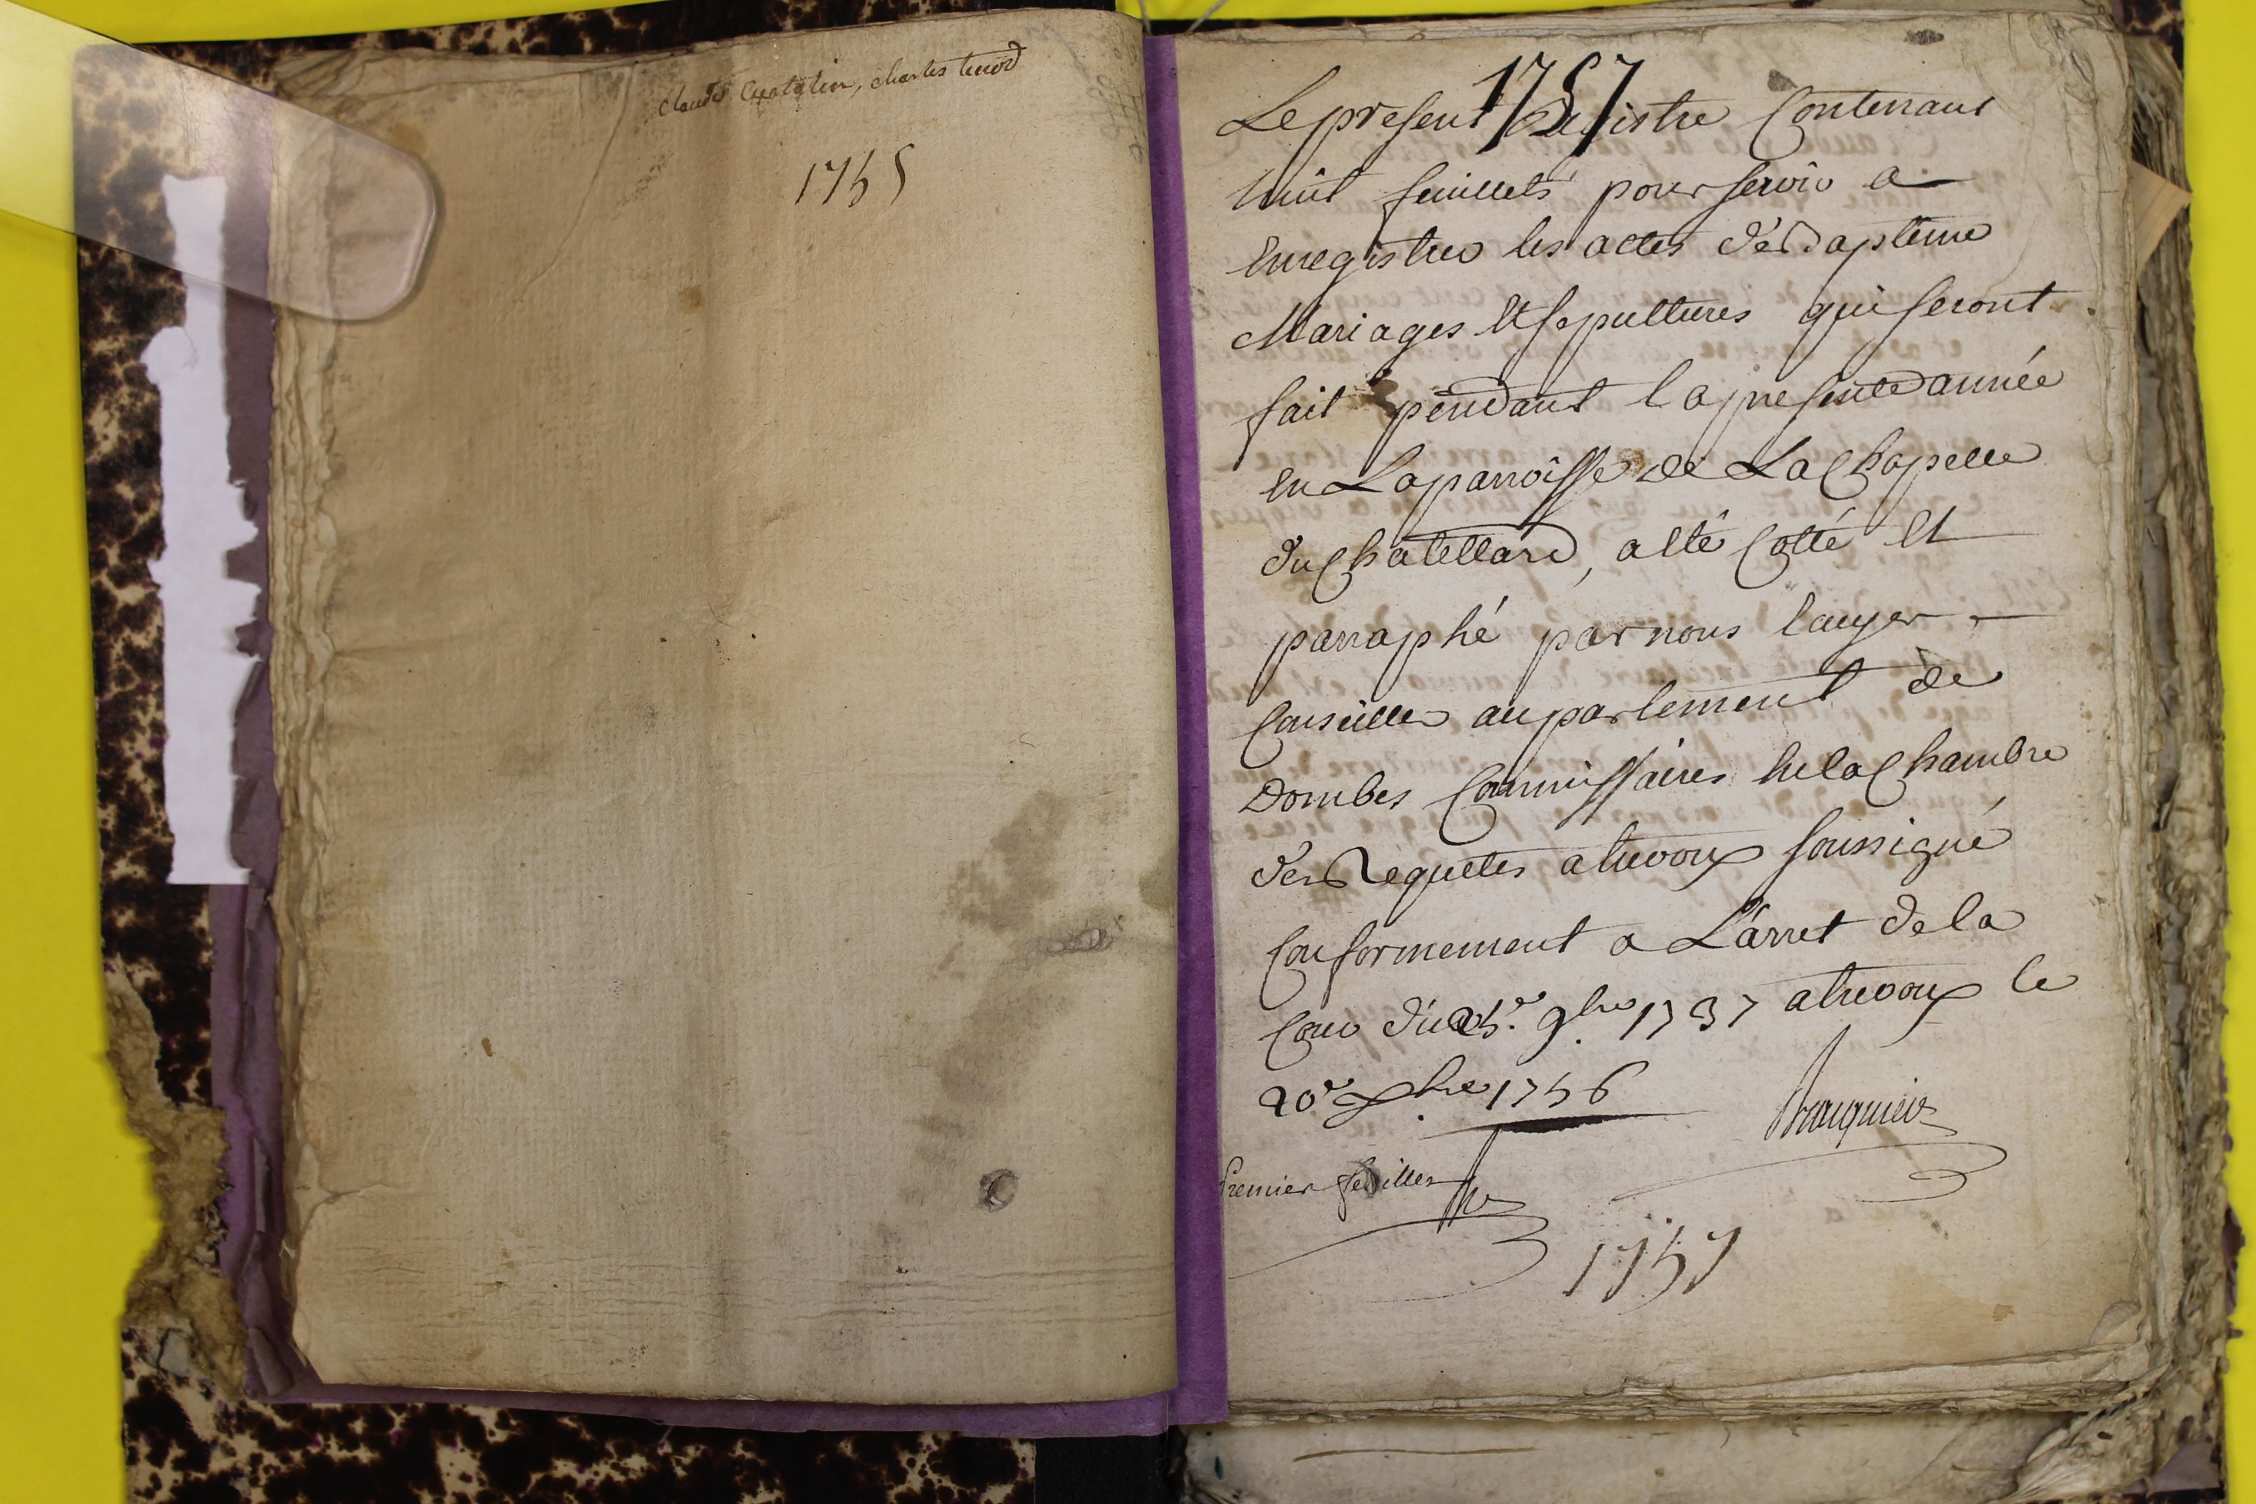 Claude Curtelin, charles tenod
1755
1757
Le present Registre Contenant
huit feuillets pour servir a
Enregistrer les actes des Baptême
Mariages Et sepultures qui seront
fait pendant la presente année
En La parroisse de La Chapelle
du Chatellard, a Eté Cotté Et
parraphé par nous
Conseiller au parlement de
Dombes Commissaires de la Chambre
des Requetes a trevoux soussigné
Conformement a L'arret de la
Cour du 25e 9bre 1737 a trevoux le
20e Xbre 1756
premier feuillet
1757